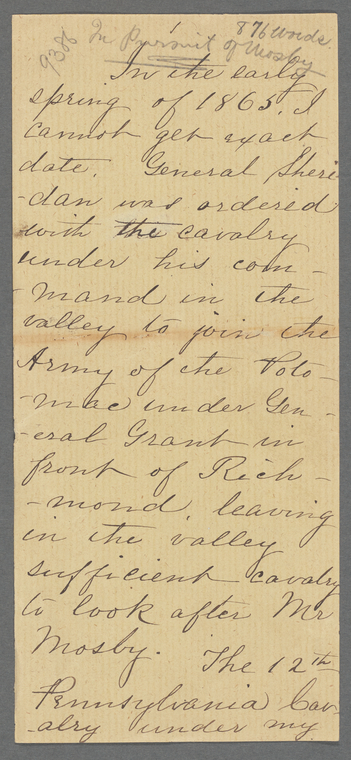 1
876 Words.
9386 In Pursuit of Mosby
In the early
spring of 1865, I
cannot get exact
date. General Sheri-
-dan was ordered
with the cavalry
under his com-
-mand in the
valley to join the
Army of the Poto-
-mac under Gen-
-eral Grant in
front of Rich-
-mond, leaving
in the valley
sufficient cavalry
to look after Mr
Mosby. The 12th
Pennsylvania Cav-
-alry under my